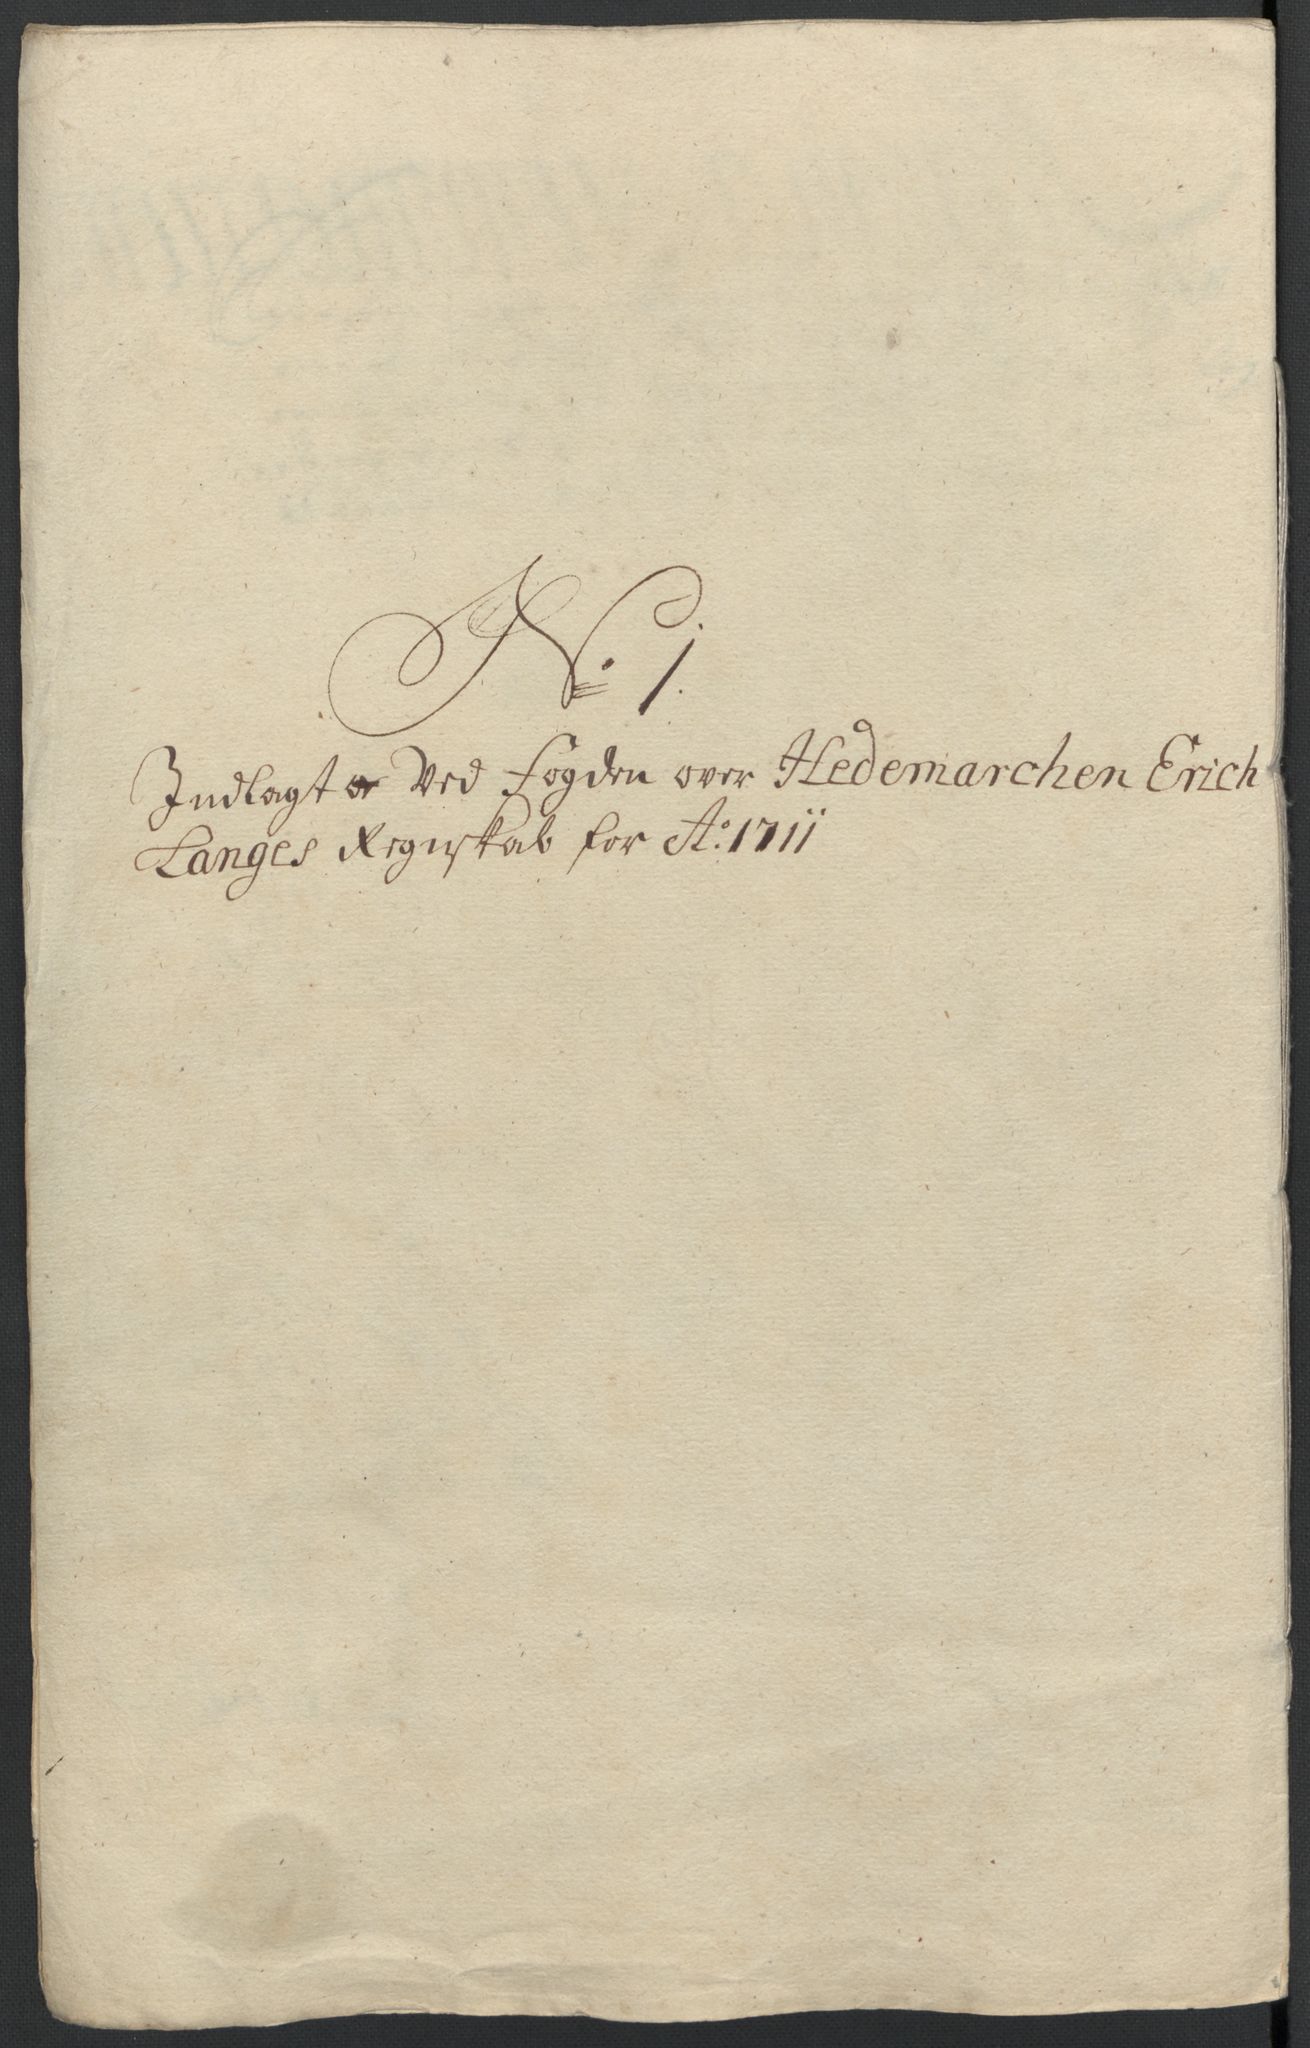 No: 1.
Indlagt Ved Fogden over Hedemarchen Erich
Langes Regnskab for Ao: 1711